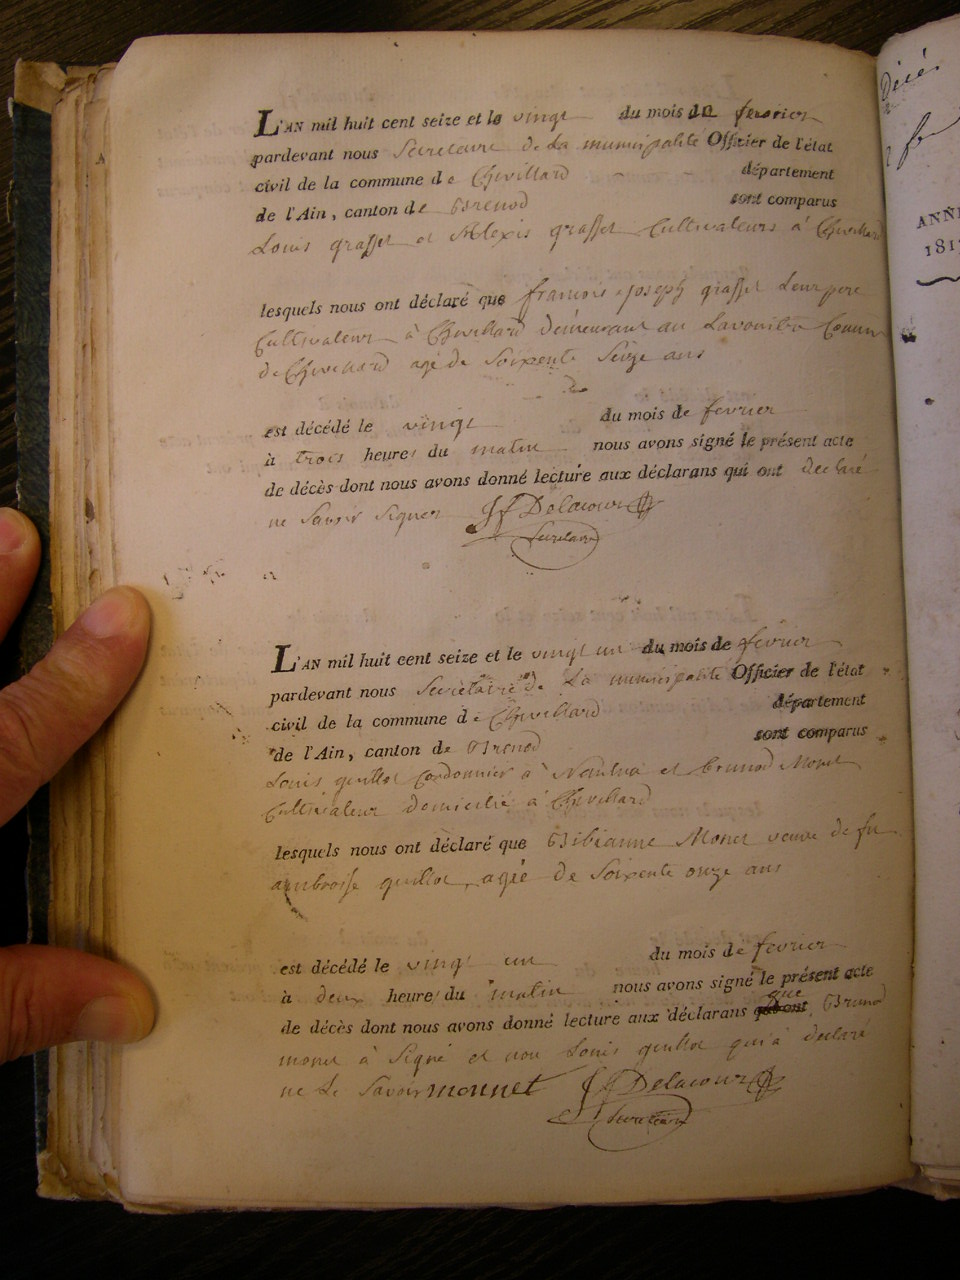 L'AN mil huit cent seize et le vingt du mois de fevrier
pardevant nous Secretaire de La municipalité Officier de l'état
civil de la commune de Chevillard département
de l'Ain, canton de Brenod sont comparus
Louis grasset et Alexis grasset Cultivateurs à Chevillard
lesquels nous ont déclaré que francois joseph grasset Leur pere
Cultivateur à Chevillard demeurant au Commune
de Chevillard agé de Soixente Seize ans
est décédé le vingt du mois de fevrier
à trois heures du matin nous avons signé le présent acte
de décès dont nous avons donné lecture aux déclarans qui ont declaré
ne Savoir Signer Delacour
Secretaire
L'AN mil huit cent seize et le vingt un du mois de fevrier
pardevant nous Secretaire de La municipalité Officier de l'état
civil de la commune de Chevillard département
de l'Ain, canton de Brenod sont comparus
Louis guillot Cordonnier à Nantua et brunod Monet
Cultivateur domicilié à Chevillard
lesquels nous ont déclaré que Bibianne Monet veuve de fu
ambroise guillot agée de Soixente onze ans
est décédé le vingt un du mois de fevrier
à deux heure du matin nous avons signé le présent acte
de décès dont nous avons donné lecture aux déclarans que Brunod
monet à Signé et non Louis guillot qui à declaré
ne Le Savoir monnet Delacour
Secretaire
Décé
ANNÉ
181